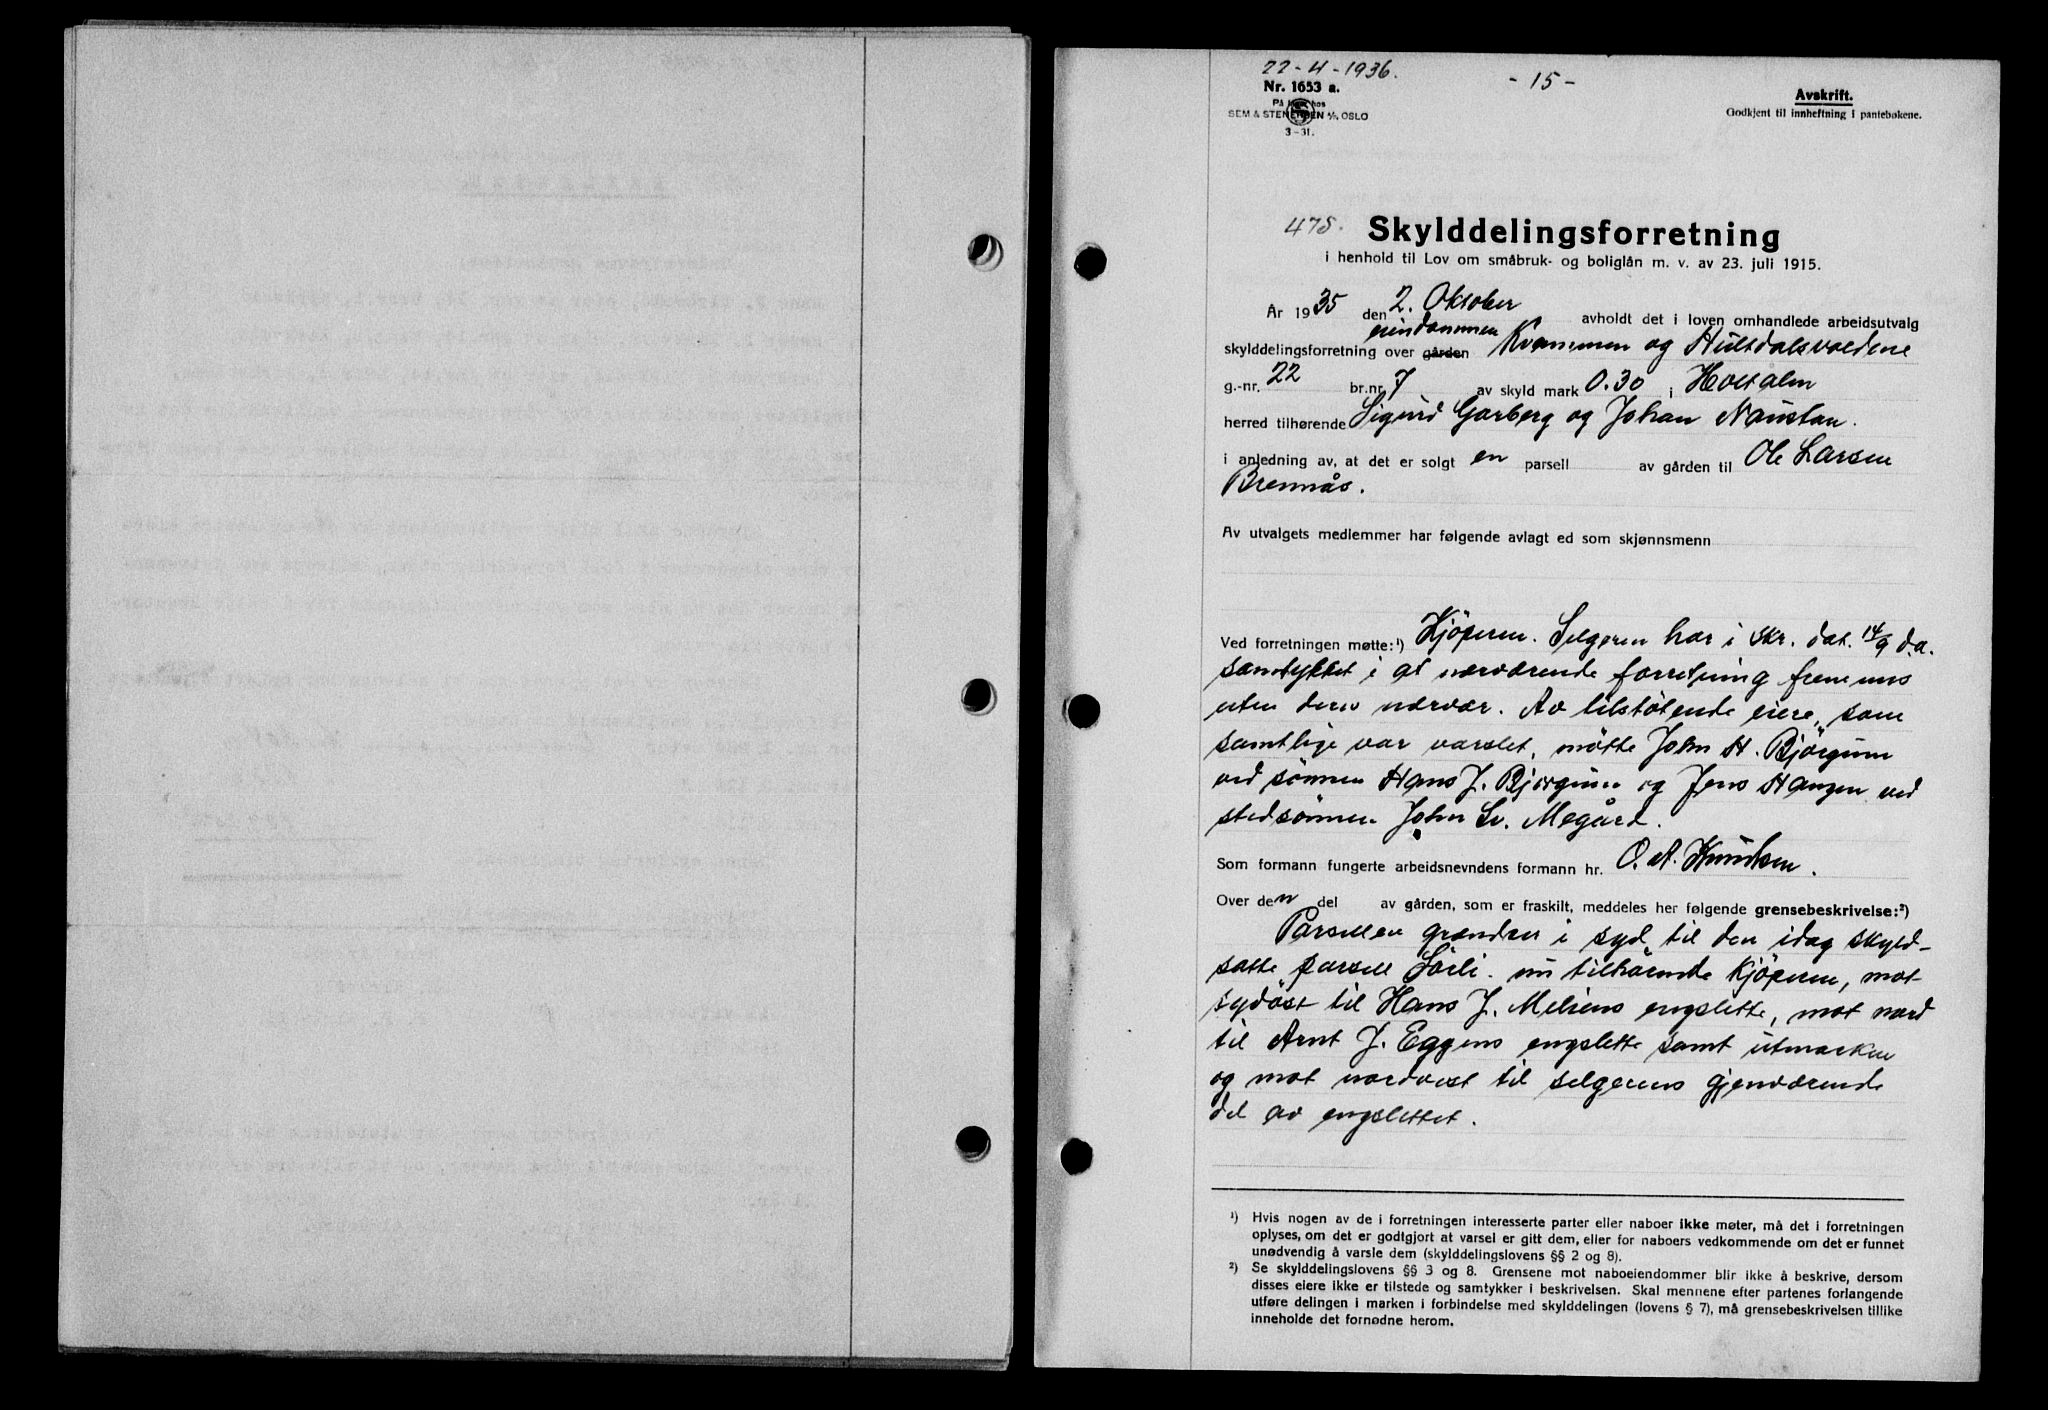 22-4-1936.
- 15 -
Nr. 1653 a.
Avskrift.
På lager hos
Godkjent til innheftning i pantebøkene.
SEM & STENERSEN A/S OSLO
3-31.
475. Skylddelingsforretning
i henhold til Lov om småbruk- og boliglån m. v. av 23. juli 1915.
År 1935 den 2. Oktober avholdt det i loven omhandlede arbeidsutvalg
eiendommen
skylddelingsforretning over gården Kvammen og Hultdalsvoldene
g.-nr. 22 br.nr. 7 av skyld mark 0.30 i Holtålen
herred tilhørende Sigurd Garberg og Johan Naustan.
i anledning av, at det er solgt en parsell av gården til Ole Larsen
Brennås.
Av utvalgets medlemmer har følgende avlagt ed som skjønnsmenn
Ved forretningen møtte:¹) Kjöperen. Selgeren har i skr. dat. 14/9 d.a.
samtykket i at nærværende forretning fremmes
uten deres nærvær. Av tilstötende eiere, som
samtlige var varslet, mötte John H. Björgum
ved sönnen Hans J. Björgum og Jens Haugen ved
stedsönnen John Sv. Megård.
Som formann fungerte arbeidsnevndens formann hr. O. A. Knudsen.
Over den del av gården, som er fraskilt, meddeles her følgende grensebeskrivelse:²)
Parsellen grændser i syd til den idag skyld-
satte parsell Sörli. nu tilhörende Kjöperen, mot
sydöst til Hans J. Meliens engslette, mot nord
til Arnt J. Eggens engslette samt utmarken
og mot nordvest til selgerens gjenværende
del av engslettet.
¹) Hvis nogen av de i forretningen interesserte parter eller naboer ikke møter, må det i forretningen
oplyses, om det er godtgjort at varsel er gitt dem, eller for naboers vedkommende om det er funnet
unødvendig å varsle dem (skylddelingslovens §§ 2 og 8).
²) Se skylddelingslovens §§ 3 og 8. Grensene mot naboeiendommer blir ikke å beskrive, dersom
disses eiere ikke er tilstede og samtykker i beskrivelsen. Skal mennene efter partenes forlangende
utføre delingen i marken i forbindelse med skylddelingen (lovens § 7), må grensebeskrivelsen tillike
inneholde det fornødne herom.